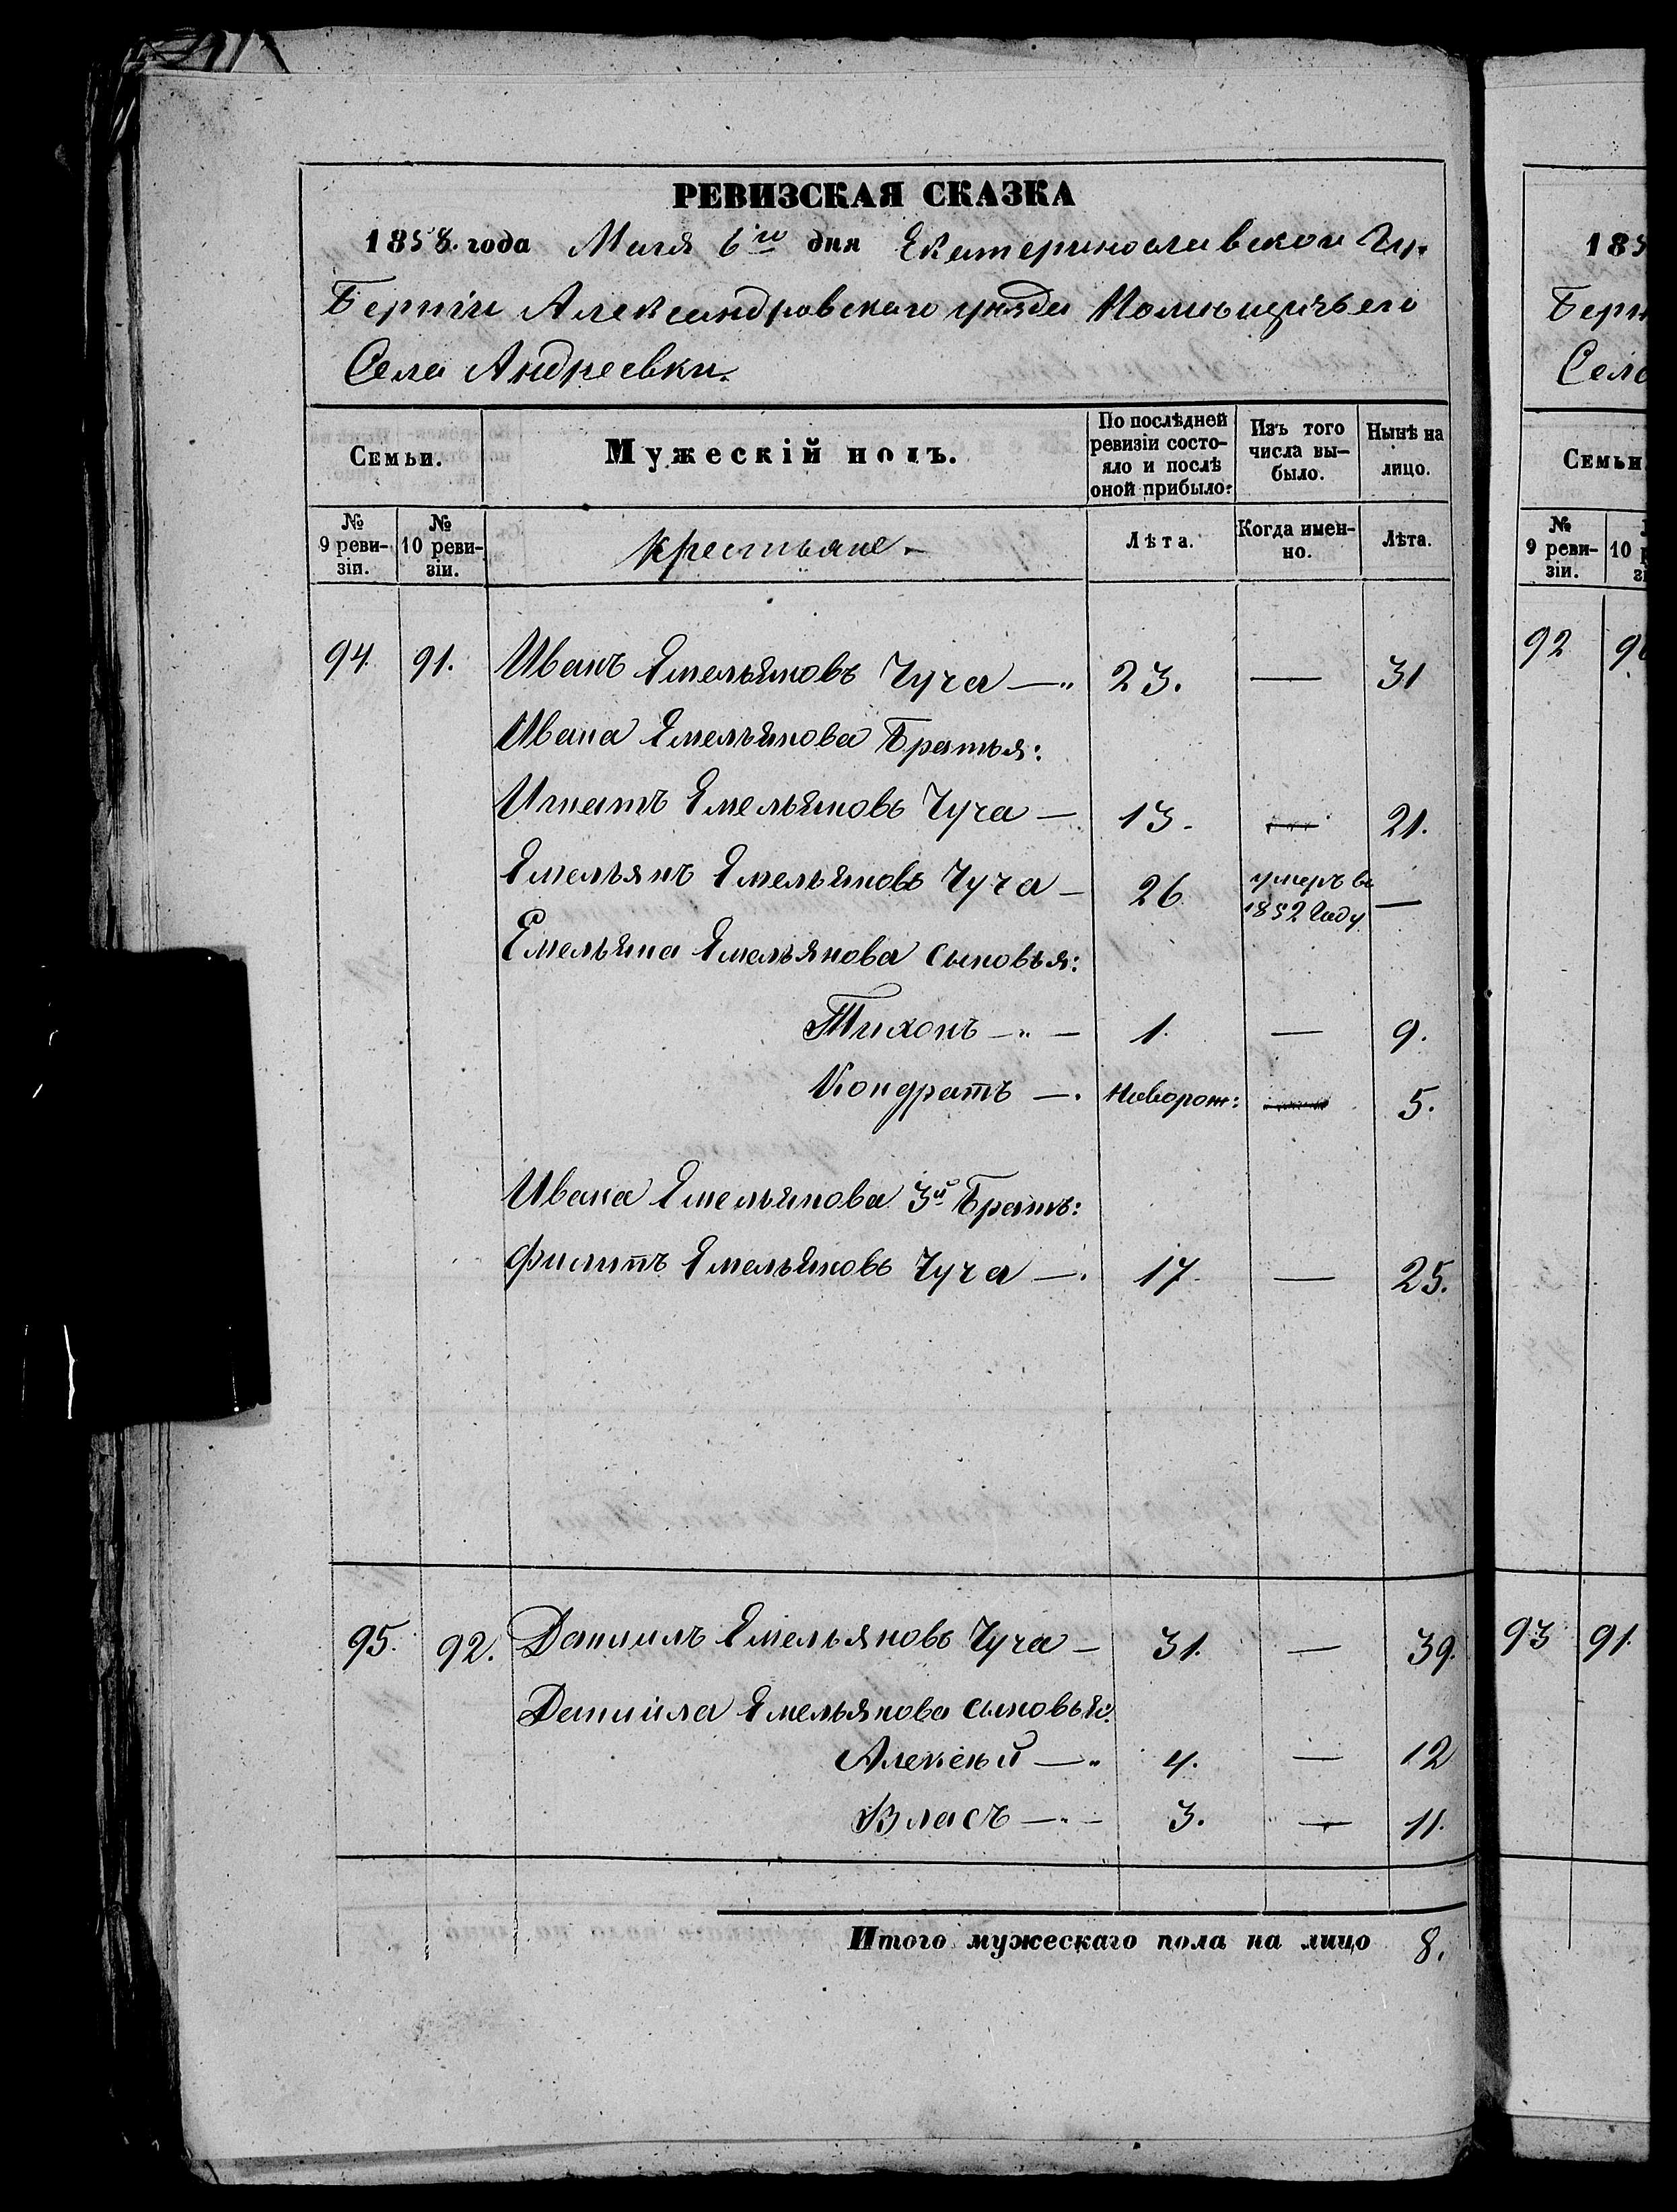 РЕВИЗСКАЯ СКАЗКА
1858. года Маія 6го дня Екатеринославской Гу-
берніи Александровскаго уѣзда Помѣщичьего
Села Андреевки.
Семьи.
Мужескій полъ.
По послѣдней ревизіи состояло и послѣ оной прибыло:
Изъ того числа выбыло.
Нынѣ на лицо.
№ 9 ревизіи.
№ 10 ревизіи.
Крестьяне.
Лѣта.
Когда именно.
Лѣта.
94. 91. Иванъ Емельяновъ Чуча — 23. — 31
Ивана Емельянова Братья:
Игнатъ Емельяновъ Чуча — 13. — 21.
Емельянъ Емельяновъ Чуча — 26 умеръ въ 1852 Году —
Емельяна Емельянова сыновья:
Тихонъ — 1. — 9.
Кондратъ — Новорож: — 5.
Ивана Емельянова 3й Братъ:
Филиппъ Емельяновъ Чуча — 17. — 25.
95. 92. Даниилъ Емельяновъ Чуча — 31. — 39.
Даниила Емельянова сыновья:
Алексѣй — 4. — 12
Власъ — 3. — 11.
Итого мужескаго пола на лицо 8.
185
Берн
Село
Семьи
№ 9 ревизіи.
10
92 9
93 91.